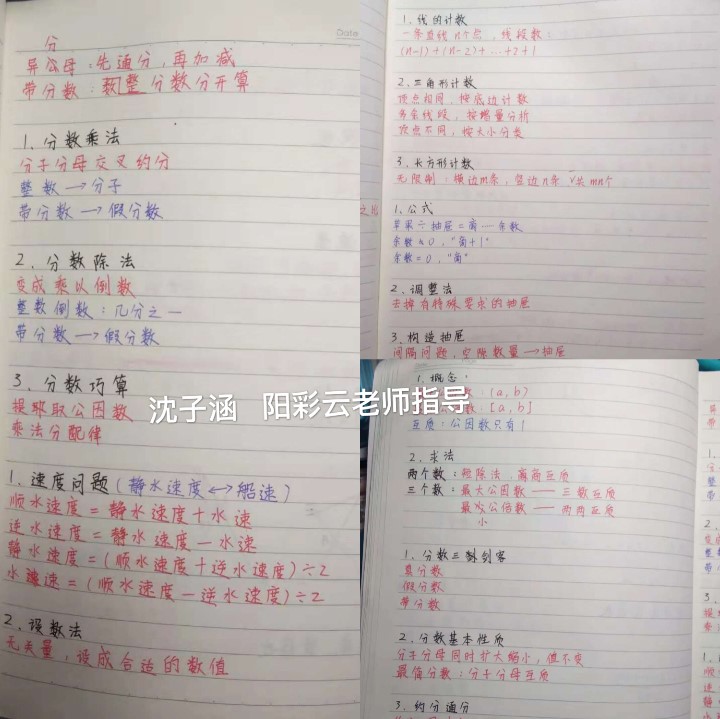 Date
分
异分母：先通分，再加减
带分数：整分数分开算
1、分数乘法
分子分母交叉约分
整数→分子
带分数→假分数
2、分数除法
变成乘以倒数
整数倒数：几分之一
带分数→假分数
3、分数巧算
提取公因数
乘法分配律
1、速度问题（静水速度↔船速）
顺水速度=静水速度+水速
逆水速度=静水速度-水速
静水速度=（顺水速度+逆水速度）÷2
水速=（顺水速度-逆水速度）÷2
2、设数法
无关量，设成合适的数值
1、线的计数
一条直线n个点，线段数：
(n-1)+(n-2)+…+2+1
2、三角形计数
顶点相同，按底边计数
多余线段，按增量分析
顶点不同，按大小分类
3、长方形计数
无限制：横边m条，竖边n条 共mn个
1、公式
苹果÷抽屉=商…余数
余数≠0，"商+1"
余数=0，"商"
2、调整法
去掉有特殊要求的抽屉
3、构造抽屉
间隔问题，空隙数量→抽屉
1、概念：
数：(a,b)
数：[a,b]
互质：公因数只有1
2、求法
两个数：短除法，商商互质
三个数：最大公因数——三数互质
最小公倍数——两两互质
1、分数三剑客
真分数
假分数
带分数
2、分数基本性质
分子分母同时扩大缩小，值不变
最简分数：分子分母互质
3、约分通分
沈子涵 阳彩云老师指导